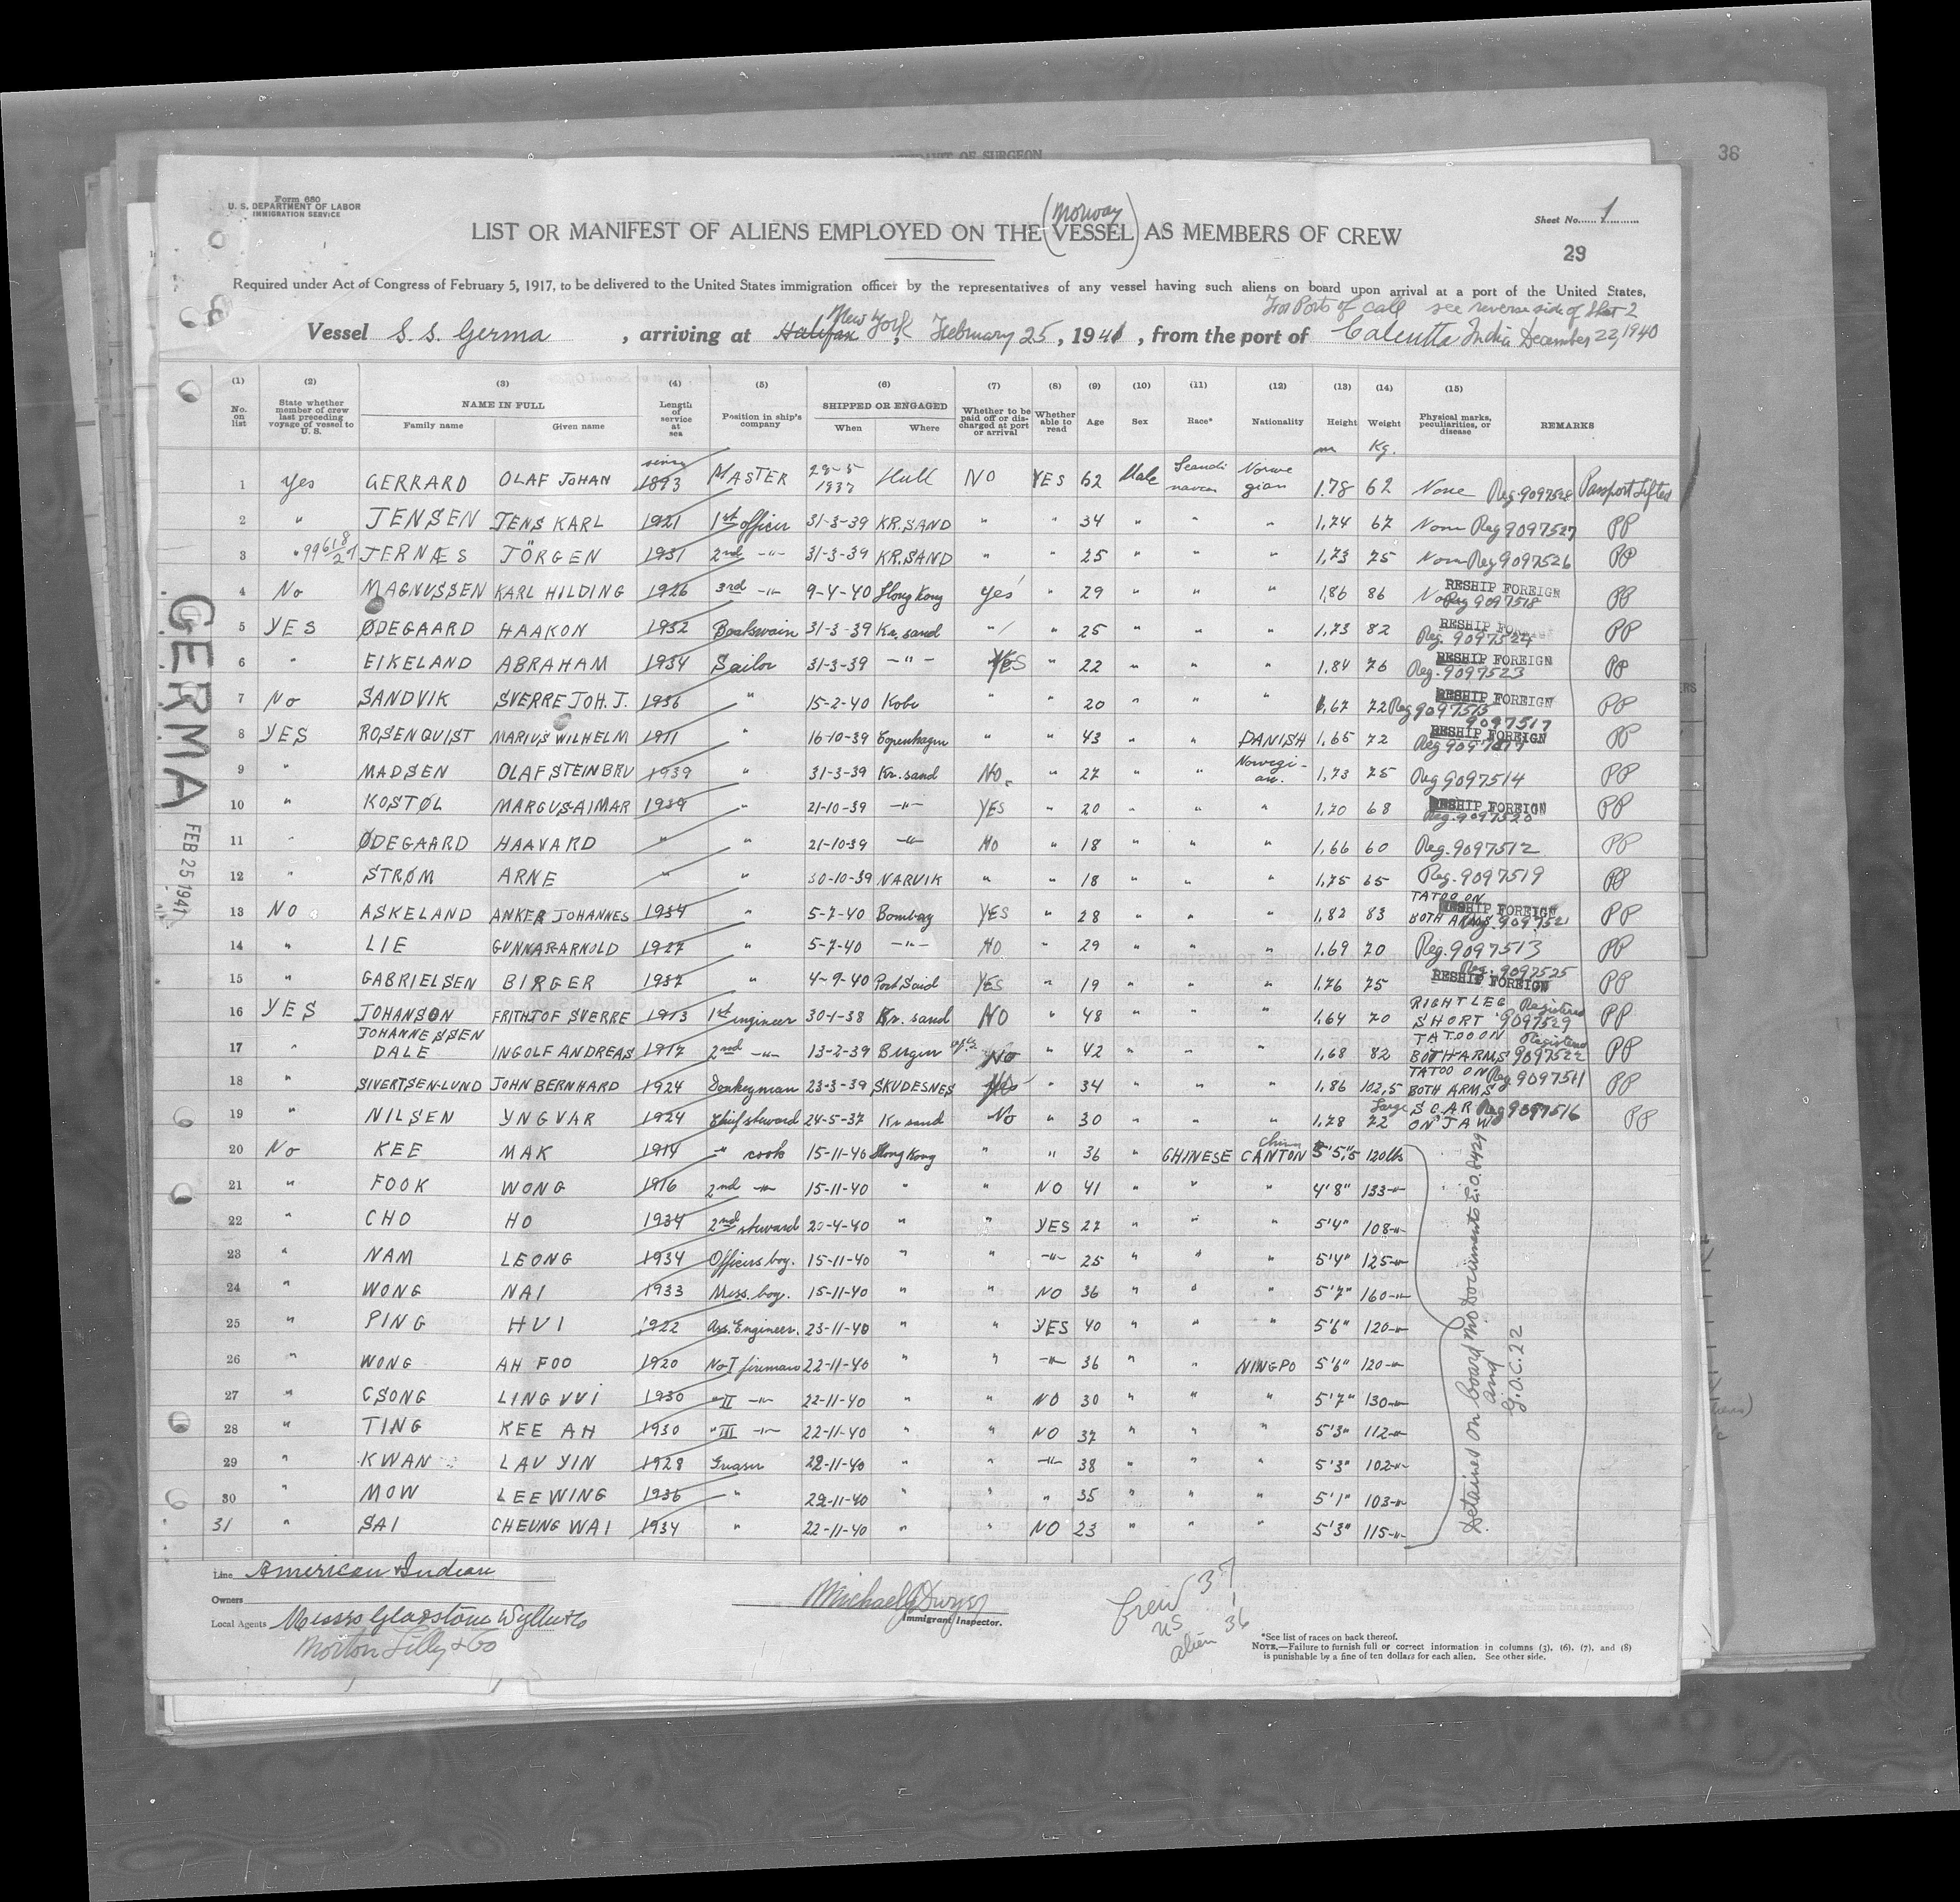 AFFIDAVIT OF SURGEON
36
Form 680
U. S. DEPARTMENT OF LABOR
IMMIGRATION SERVICE
Sheet No. 1
29
(Norway)
LIST OR MANIFEST OF ALIENS EMPLOYED ON THE (VESSEL) AS MEMBERS OF CREW
Required under Act of Congress of February 5, 1917, to be delivered to the United States immigration officer by the representatives of any vessel having such aliens on board upon arrival at a port of the United States,
For Ports of call see reverse side of Sheet 2
Vessel S.S. Germa, arriving at Halifax New York, February 25, 1941, from the port of Calcutta India December 22, 1940
(1) (2) (3) (4) (5) (6) (7) (8) (9) (10) (11) (12) (13) (14) (15)
No. on list State whether member of crew last preceding voyage of vessel to U. S. NAME IN FULL Family name Given name Length of service at sea Position in ship's company SHIPPED OR ENGAGED When Where Whether to be paid off or discharged at port or arrival Whether able to read Age Sex Race* Nationality Height Weight Physical marks, peculiarities, or disease REMARKS
m Kg.
1 yes GERRARD OLAF JOHAN since 1893 MASTER 28-5 1937 Hull NO YES 62 Male Scandi navian Norwe gian 1.78 62 None Reg. 9097528 Passport Lifted
2 " JENSEN JENS KARL 1921 1st officer 31-3-39 KR.SAND " " 34 " " " 1,74 67 None Reg 9097527 PP
3 " 99618/27 JERNÆS JÖRGEN 1931 2nd -"- 31-3-39 KR.SAND " " 25 " " " 1,73 75 None Reg 9097526 PP
4 No MAGNUSSEN KARL HILDING 1926 3rd -"- 9-4-40 Hong Kong yes " 29 " " " 1,86 86 RESHIP FOREIGN Reg 9097518 PP
5 YES ØDEGAARD HAAKON 1932 Boatswain 31-3-39 Kr. sand " " 25 " " " 1,73 82 RESHIP FOREIGN Reg. 9097524 PP
6 " EIKELAND ABRAHAM 1934 Sailor 31-3-39 -"- YES " 22 " " " 1,84 76 RESHIP FOREIGN Reg. 9097523 PP
7 No SANDVIK SVERRE JOH. J. 1936 " 15-2-40 Kobe " " 20 " " " 1,67 72 RESHIP FOREIGN Reg 9097515 PP
8 YES ROSENQUIST MARIUS WILHELM 1911 " 16-10-39 Copenhagen " " 43 " " DANISH 1,65 72 9097517 RESHIP FOREIGN PP
9 " MADSEN OLAF STEINBRU 1939 " 31-3-39 Kr. sand No. " 27 " " Norwegi- an. 1,73 75 Reg 9097514 PP
10 " KOSTØL MARGUS AIMAR 1939 " 21-10-39 -"- YES " 20 " " " 1,70 68 RESHIP FOREIGN Reg. 9097520 PP
11 " ØDEGAARD HAAVARD " " 21-10-39 -"- NO " 18 " " " 1,66 60 Reg. 9097512 PP
12 " STRØM ARNE " " 30-10-39 NARVIK " " 18 " " " 1,75 65 Reg. 9097519 PP
13 NO ASKELAND ANKER JOHANNES 1934 " 5-7-40 Bombay YES " 28 " " " 1,82 83 TATOO ON BOTH ARMS RESHIP FOREIGN Reg. 9097521 PP
14 " LIE GUNNAR ARNOLD 1927 " 5-7-40 -"- NO " 29 " " " 1,69 70 Reg. 9097513 PP
15 " GABRIELSEN BIRGER 1937 " 4-9-40 Port Said YES " 19 " " " 1,76 75 Reg. 9097525 RESHIP FOREIGN PP
16 YES JOHANSON FRITHJOF SVERRE 1913 1st engineer 30-1-38 Kr. sand NO " 48 " " " 1,64 70 RIGHT LEG SHORT Registered 9097529 PP
17 " JOHANNESSEN DALE INGOLF ANDREAS 1917 2nd -"- 13-2-39 Bergen No " 42 " " " 1,68 82 TATOO ON BOTH ARMS Registered 9097522 PP
18 " SIVERTSEN-LUND JOHN BERNHARD 1924 Donkeyman 23-3-39 SKUDESNES " 34 " " " 1,86 102,5 TATOO ON BOTH ARMS Reg 9097511 PP
19 " NILSEN YNGVAR 1924 Chief steward 24-5-37 Kr sand No " 30 " " " 1,78 72 Large SCAR ON JAW Reg 9097516 PP
20 No KEE MAK 1914 " cook 15-11-40 Hong Kong " " 36 " CHINESE China CANTON 5'5,5 120 lbs
21 " FOOK WONG 1916 2nd -"- 15-11-40 " " NO 41 " " " 4'8" 133 -"-
22 " CHO HO 1934 2nd steward 20-4-40 " " YES 27 " " " 5'4" 108 -"-
23 " NAM LEONG 1934 Officers boy. 15-11-40 " " -"- 25 " " " 5'4" 125 -"-
24 " WONG NAI 1933 Mess. boy. 15-11-40 " " NO 36 " " " 5'7" 160 -"-
25 " PING HUI 1922 Ass. Engineer. 23-11-40 " " YES 40 " " " 5'6" 120 -"-
26 " WONG AH FOO 1920 No I fireman 22-11-40 " " -"- 36 " " NINGPO 5'6" 120 -"-
27 " CSONG LING VVI 1930 " II -"- 22-11-40 " " NO 30 " " " 5'7" 130 -"-
28 " TING KEE AH 1930 " III -"- 22-11-40 " " NO 37 " " " 5'3" 112 -"-
29 " KWAN LAU YIN 1928 Greaser 22-11-40 " " -"- 38 " " " 5'3" 102 -"-
30 " MOW LEE WING 1936 " 22-11-40 " " " 35 " " " 5'1" 103 -"-
31 " SAI CHEUNG WAI 1934 " 22-11-40 " " NO 23 " " " 5'3" 115 -"-
Detained on board No Documents E.O. 8429
and
G.O.C. 22
GERMA
FEB 25 1941
Line American & Indian
Owners
Local Agents Messrs Gladstone Wyllie & Co
Morton Lilly & Co
Michael J Dwyer
Immigrant Inspector.
Crew 37
US 1
alien 36
*See list of races on back thereof.
NOTE.—Failure to furnish full or correct information in columns (3), (6), (7), and (8)
is punishable by a fine of ten dollars for each alien. See other side.